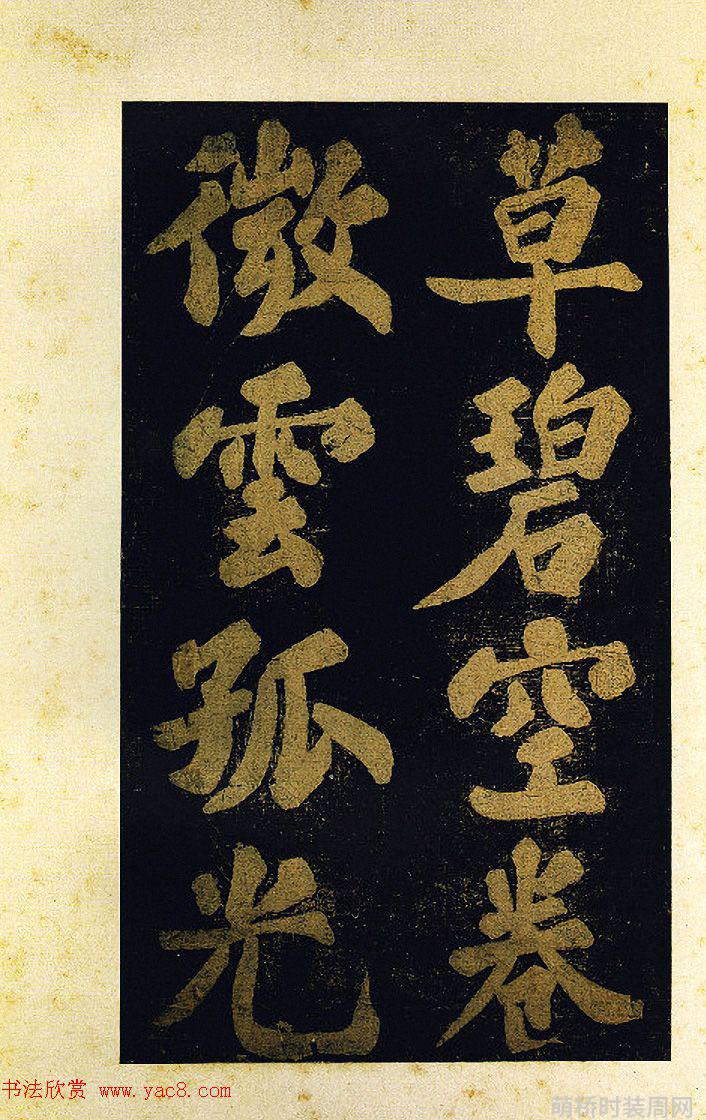 草碧空卷
微雲孤光
书法欣赏 www.yac8.com
萌桥时装周网